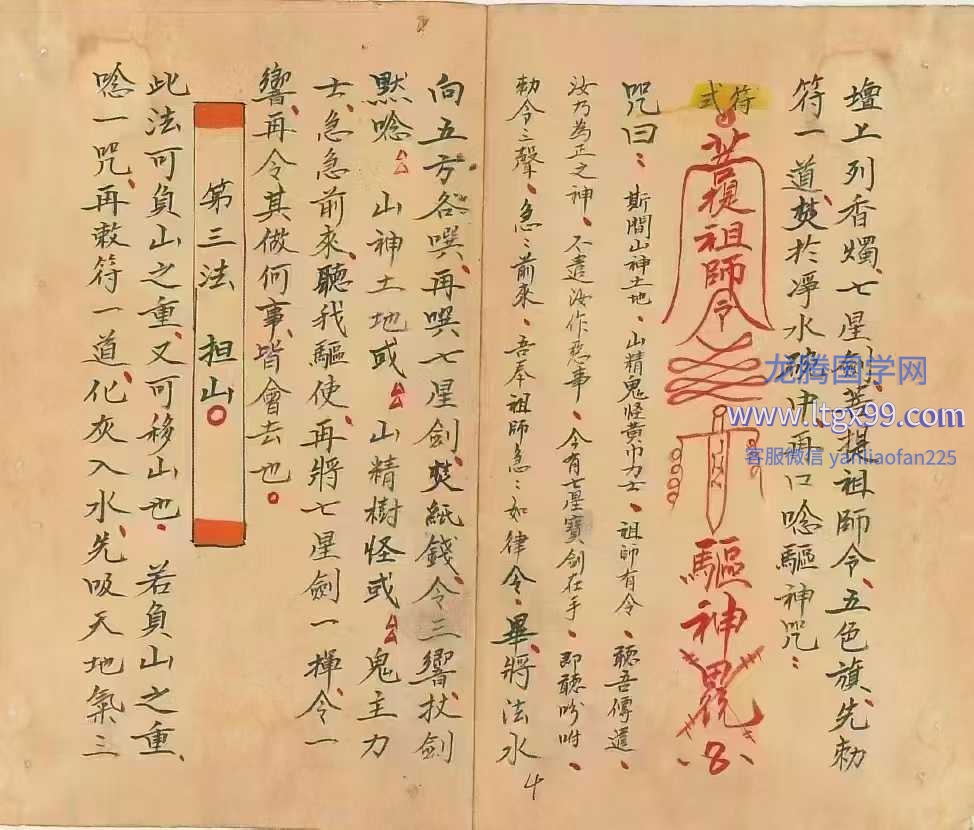 壇上列香燭、七星劍、菩提祖師令、五色旗、先勅
符一道、焚於凈水碗中、再口唸驅神咒：
符式
菩提祖師令
驅神
咒曰：斯間山神土地、山精鬼怪黃巾力士、祖師有令、聽吾傳遣、
汝乃為正之神、不遣汝作惡事、今有七星寶劍在手、即聽吩咐、
勅令三聲、急：前來、吾奉祖師急：如律令、畢、將法水
向五方各噀、再噀七星劍、焚紙錢、令三響、扙劍
默唸、△△山神土地或△△山精樹怪或△△鬼主力
士、急急前來、聽我驅使、再將七星劍一揮、令一
響、再令其做何事、皆會去也。
第三法 担山。
此法可負山之重、又可移山也、若負山之重、
唸一咒、再敕符一道、化灰入水、先吸天地氣三
4
龙腾国学网
www.ltgx99.com
客服微信 yanliaofan225